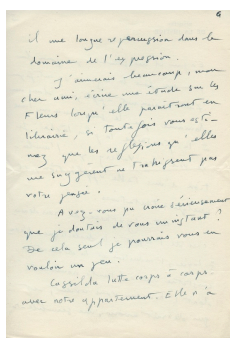 6
il une longue répercussion dans le
domaine de l'expression.
J'aimerais beaucoup, mon
cher ami, écrire une étude sur les
Fleurs lorsqu'elle paraîtront en
librairie, si toutefois vous esti-
mez que les réflexions qu'elles
me suggèrent ne trahissent pas
votre pensée.
Avez-vous pu croire sérieusement
que je doutais de vous un instant ?
De cela seul je pourrais vous en
vouloir un peu.
Cassilda lutte corps à corps
avec notre appartement. Elle n'a